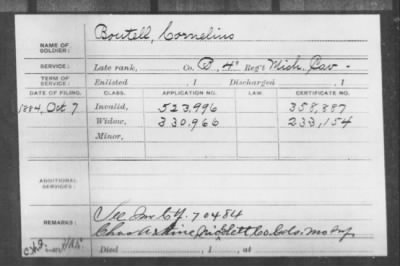 Boutell, Cornelius
NAME OF SOLDIER:
SERVICE: Late rank, Co. B, 4" Reg't Mich. Cav -
TERM OF SERVICE: Enlisted , 1 Discharged , 1
DATE OF FILING. CLASS. APPLICATION NO. LAW. CERTIFICATE NO.
1884, Oct 7 Invalid, 523,996 358,887
Widow, 330,966 233,154
Minor,
ADDITIONAL SERVICES:
See 70484
REMARKS: Co.
Died , 1 , at